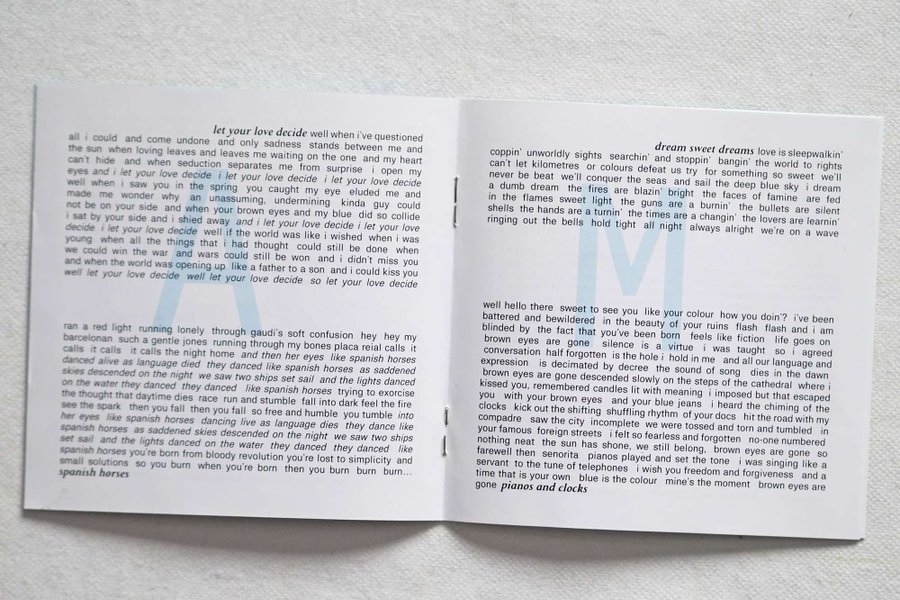 let your love decide well when i've questioned
all i could and come undone and only sadness stands between me and
the sun when loving leaves and leaves me waiting on the one and my heart
can't hide and when seduction separates me from surprise i open my
eyes and i let your love decide i let your love decide i let your love decide
well when i saw you in the spring you caught my eye eluded me and
made me wonder why an unassuming, undermining kinda guy could
not be on your side and when your brown eyes and my blue did so collide
i sat by your side and i shied away and i let your love decide i let your love
decide i let your love decide well if the world was like i wished when i was
young when all the things that i had thought could still be done when
we could win the war and wars could still be won and i didn't miss you
and when the world was opening up like a father to a son and i could kiss you
well let your love decide well let your love decide so let your love decide
ran a red light running lonely through gaudi's soft confusion hey hey my
barcelonan such a gentle jones running through my bones placa reial calls it
calls it calls it calls the night home and then her eyes like spanish horses
danced alive as language died they danced like spanish horses as saddened
skies descended on the night we saw two ships set sail and the lights danced
on the water they danced they danced like spanish horses trying to exorcise
the thought that daytime dies race run and stumble fall into dark feel the fire
see the spark then you fall then you fall so free and humble you tumble into
her eyes like spanish horses dancing live as languages died they dance like
spanish horses as saddened skies descended on the night we saw two ships
set sail and the lights danced on the water they danced they danced like
spanish horses you're born from bloody revolution you're lost to simplicity and
small solutions so you burn when you're born then you burn burn burn...
spanish horses
A
dream sweet dreams love is sleepwalkin'
coppin' unworldly sights searchin' and stoppin' bangin' the world to rights
can't let kilometres or colours defeat us try for something so sweet we'll
never be beat we'll conquer the seas and sail the deep blue sky i dream
a dumb dream the fires are blazin' bright the faces of famine are fed
in the flames sweet light the guns are a burnin' the bullets are silent
shells the hands are a turnin' the times are a changin' the lovers are learnin'
ringing out the bells hold tight all night always alright we're on a wave
well hello there sweet to see you like your colour how you doin'? i've been
battered and bewildered in the beauty of your ruins flash flash and i am
blinded by the fact that you've been born feels like fiction life goes on
brown eyes are gone silence is a virtue i was taught so i agreed
conversation half forgotten is the hole i hold in me and all our language and
expression is decimated by decree the sound of song dies in the dawn
brown eyes are gone descended slowly on the steps of the cathedral where i
kissed you, remembered candles lit with meaning i imposed but that escaped
you with your brown eyes and your blue jeans i heard the chiming of the
clocks kick out the shifting shuffling rhythm of your docs hit the road with my
compadre saw the city incomplete we were tossed and torn and tumbled in
your famous foreign streets i felt so fearless and forgotten no-one numbered
nothing neat the sun has shone, we still belong, brown eyes are gone so
farewell then senorita pianos played and set the tone i was singing like a
servant to the tune of telephones i wish you freedom and forgiveness and a
time that is your own blue is the colour mine's the moment brown eyes are
gone pianos and clocks
M